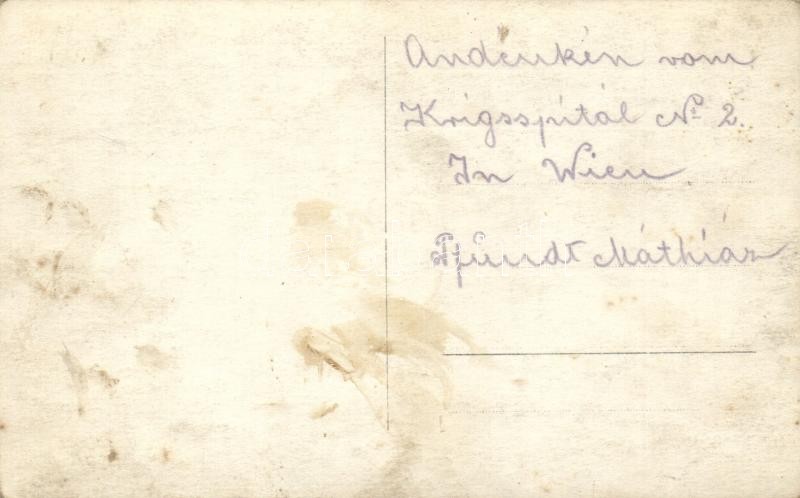 Andenken vom
Krigsspitál № 2.
In Wien
Pfundt Máthiás